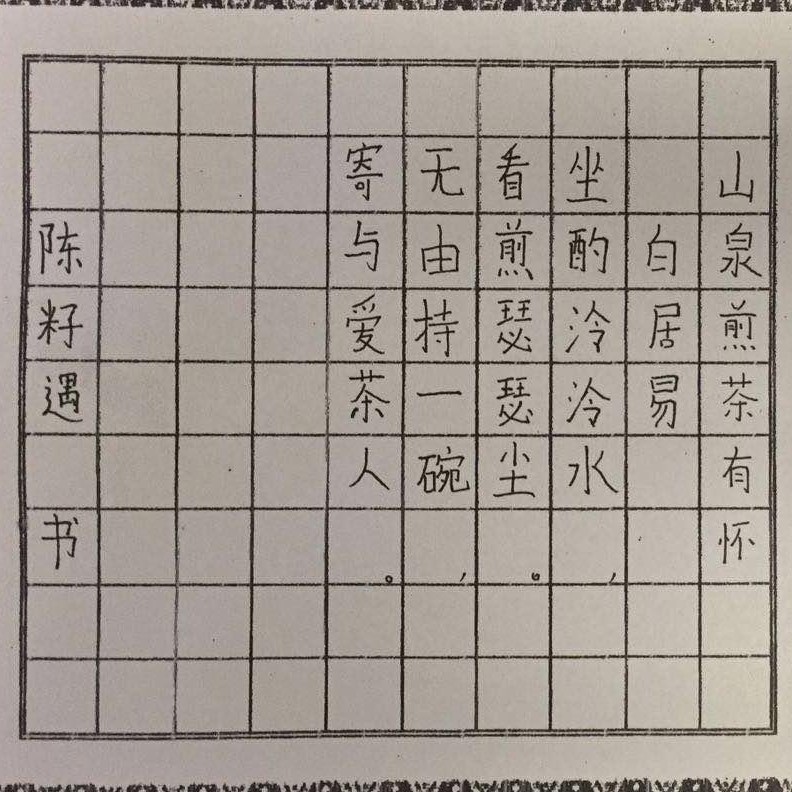 山泉煎茶有怀
白居易
坐酌泠泠水，
看煎瑟瑟尘。
无由持一碗，
寄与爱茶人。
陈籽遇 书